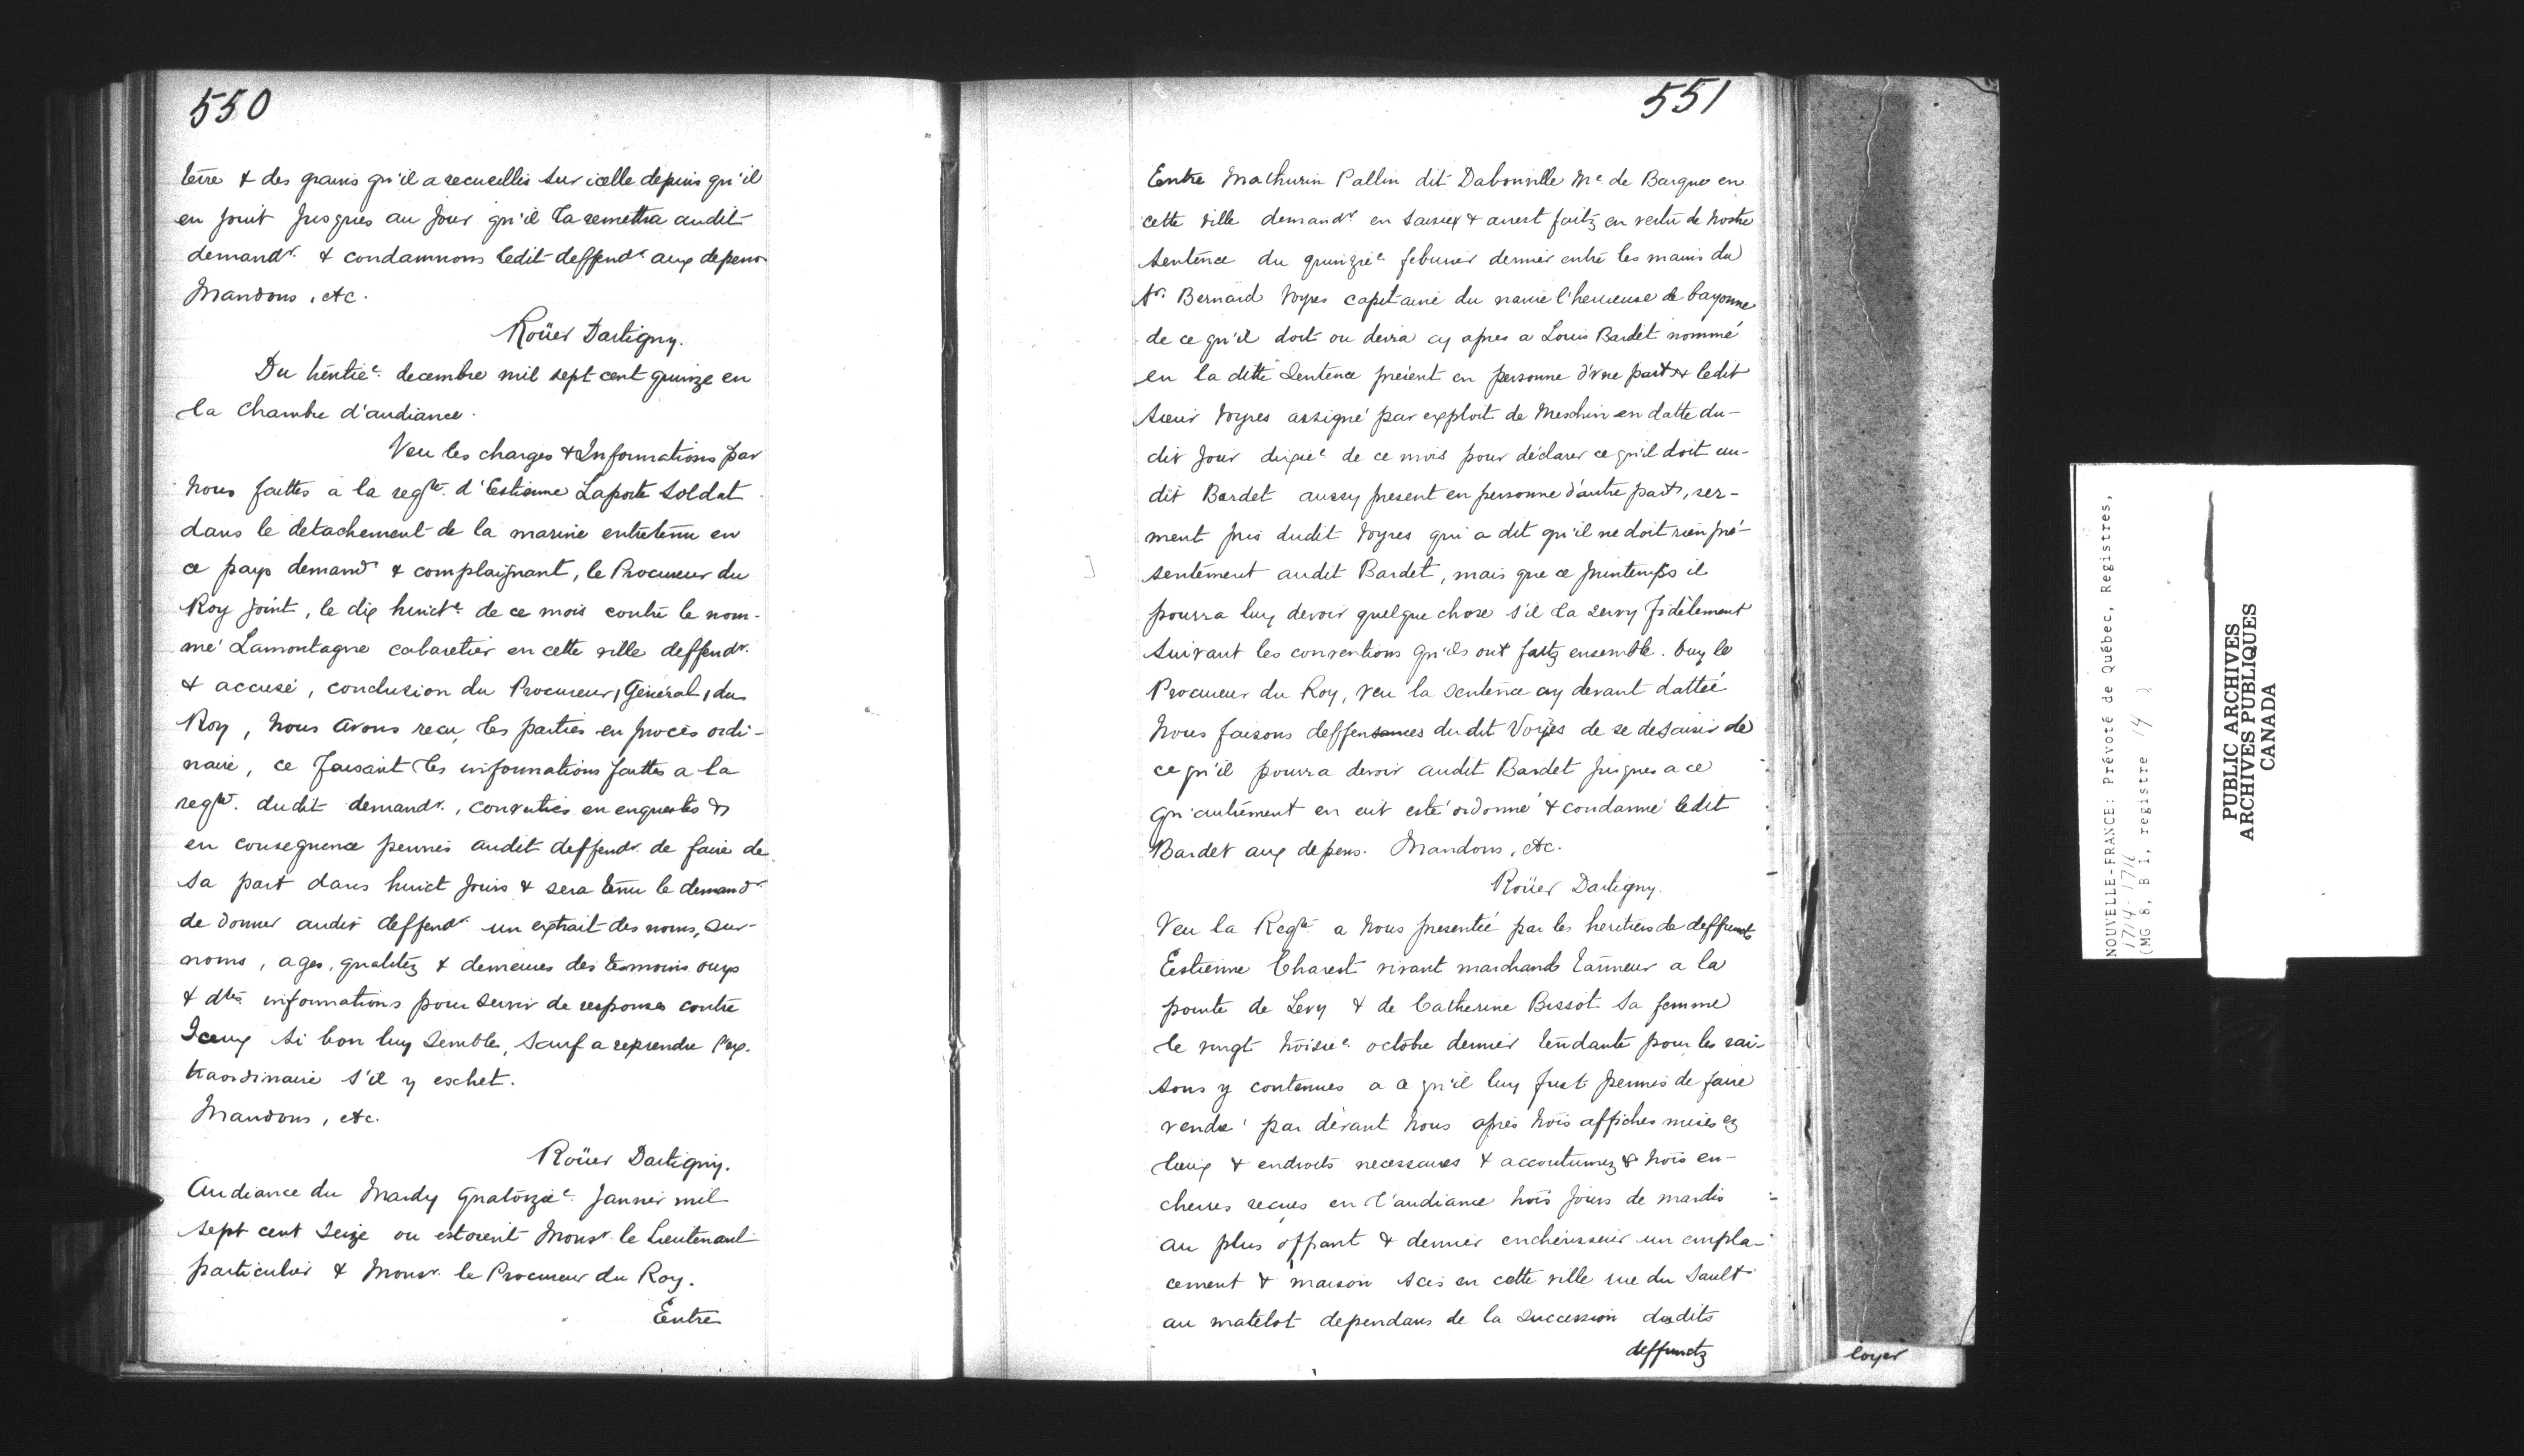 550
terre & des grains qu'il a recueillis sur icelle depuis qu'il
en jouit jusques au jour qu'il la remettra audit
demandr. & condamnons ledit deffendr aux depens
Mandons, etc.
Roüer Dartigny.
Du trentie. decembre mil sept cent quinze en
la chambre d'audiance.
Veu les charges & Informations par
Nous faittes a la reqte. d'Estienne Laporte Soldat
dans le detachement de la marine entretenu en
ce pays demandr & complaignant, le Procureur du
Roy joint, le dix huicte. de ce mois contre le nom-
mé Lamontagne cabaretier en cette ville deffendr.
& accusé, conclusion du Procureur, General, du
Roy, Nous avons receu les parties en procès ordi-
naire, ce faisant les informations faittes a la
reqte. dudit demandr., converties en enquestes &
en consequence permis audit deffendr. de faire de
sa part dans huict jours & sera tenu le demandr
de donner audit deffendr un extrait des noms, sur-
noms, ages, qualitéz & demeures des tesmoins ouys
& dtes informations pour servir de responses contre
Iceux si bon luy semble, sauf a reprendre l'ex-
traordinaire s'il y eschet.
Mandons, etc.
Roüer Dartigny.
Audiance du Mardy quatorzie. Janvier mil
sept cent seize ou estoient Monsr. le Lieutenant
particulier & Monsr. le Procureur du Roy.
Entre
551
Entre Mathurin Pallin dit Dabonville Me. de Barque en
cette ville demandr en saisies & arrest faitz en vertu de Nostre
sentence du quinzie. febvrier dernier entre les mains du
sr. Bernard Voyres capitaine du navire l'heureuse de bayonne
de ce qu'il doit ou devra cy apres a Louis Bardet nommé
en la ditte Sentence présent en personne d'une part & ledit
sieur Voyres assigné par exploit de Meschin en datte du-
dit jour dixie. de ce mois pour déclarer ce qu'il doit au-
dit Bardet aussy present en personne d'autre part, ser-
ment pris dudit Voyres qui a dit qu'il ne doit rien pré-
sentement audit Bardet, mais que ce printemps il
pourra luy devoir quelque chose s'il la servy fidèlement
suivant les conventions qu'ils ont faitz ensemble. Ouy le
Procureur du Roy, veu la sentence cy devant dattée
Nous faisons deffensances du dit Voyres de se desaisir de
ce qu'il pourra devoir audit Bardet jusques a ce
qu'autrement en eut esté ordonné & condamné ledit
Bardet aux depens. Mandons, etc.
Roüer Dartigny.
Veu la Reqte a Nous presentée par les heritiers de deffunts
Estienne Charest vivant marchands tanneur a la
pointe de Levy & de Catherine Bissot sa femme
le vingt troisie. octobre dernier tendante pour les rai-
sons y contenues a ce qu'il luy fust permis de faire
vendre par devant Nous après trois affiches mises ez
lieux & endroits necessaires & accoutumez & trois en-
cheres reçues en l'audiance trois jours de mardis
au plus offrant & dernier enchérisseur un empla-
cement & maison scis en cette ville rue du Sault
au matelot dependans de la succession desdits
deffunctz
loyer
NOUVELLE-FRANCE: Prévoté de Québec, Registres,
1714-1716
(MG 8, B 1, registre 14 )
PUBLIC ARCHIVES
ARCHIVES PUBLIQUES
CANADA